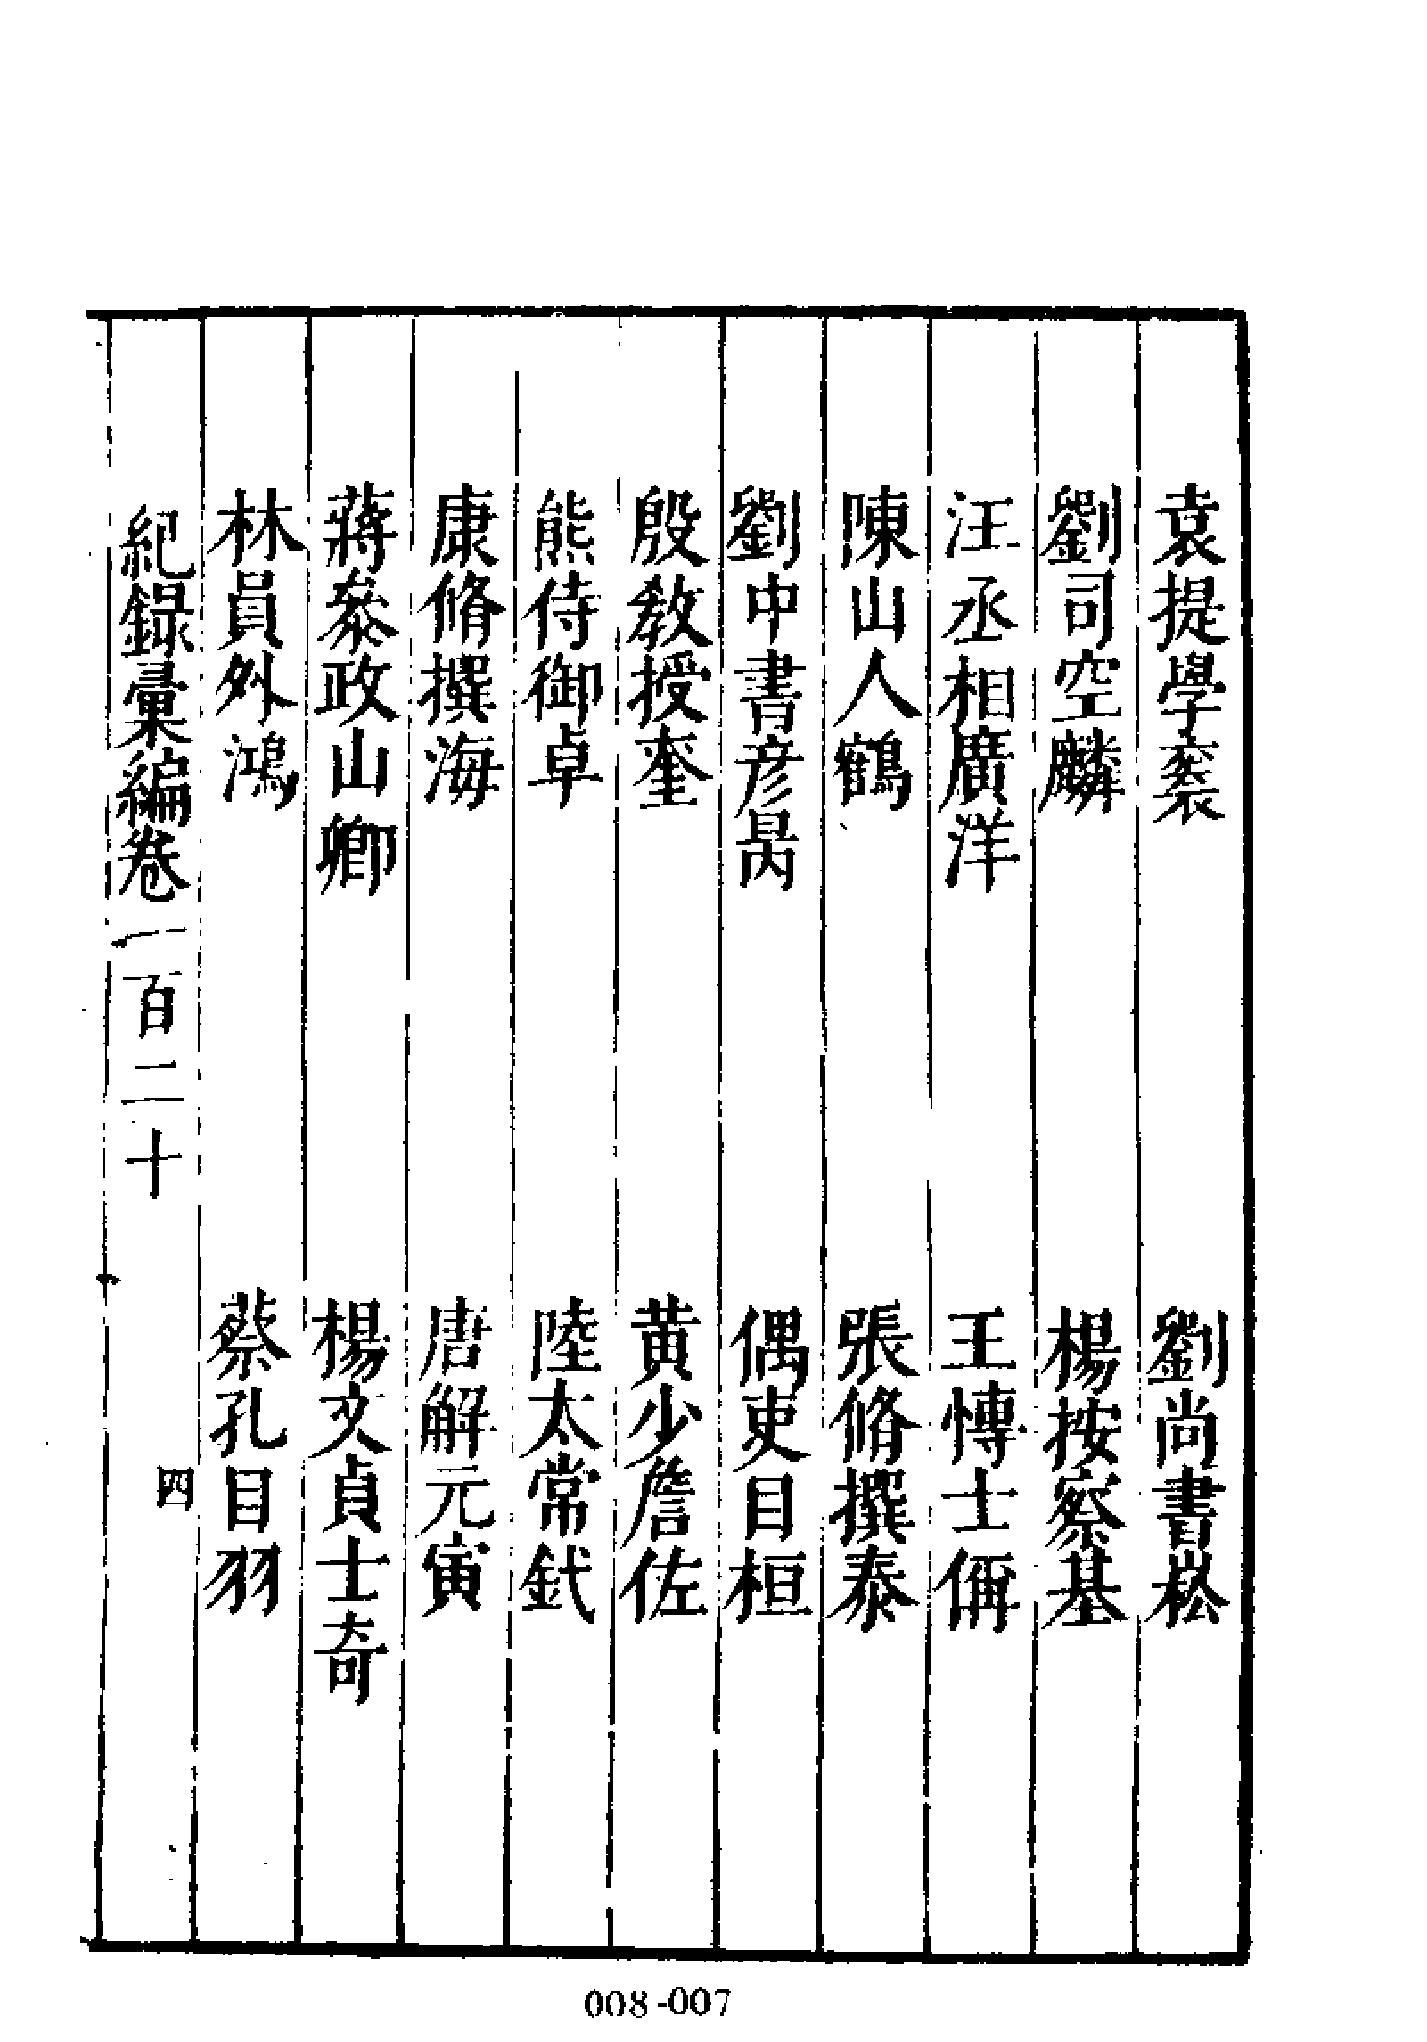 袁提學袠　劉尚書崧
劉司空麟　楊按察基
汪丞相廣洋　王博士偁
陳山人鶴　張脩撰泰
劉中書彦昺　偶吏目桓
殷敎授奎　黄少詹佐
熊侍御卓　陸太常釴
康脩撰海　唐解元寅
蔣叅政山卿　楊文貞士奇
林員外鴻　蔡孔目羽
紀錄彙編卷一百二十　四
008-007